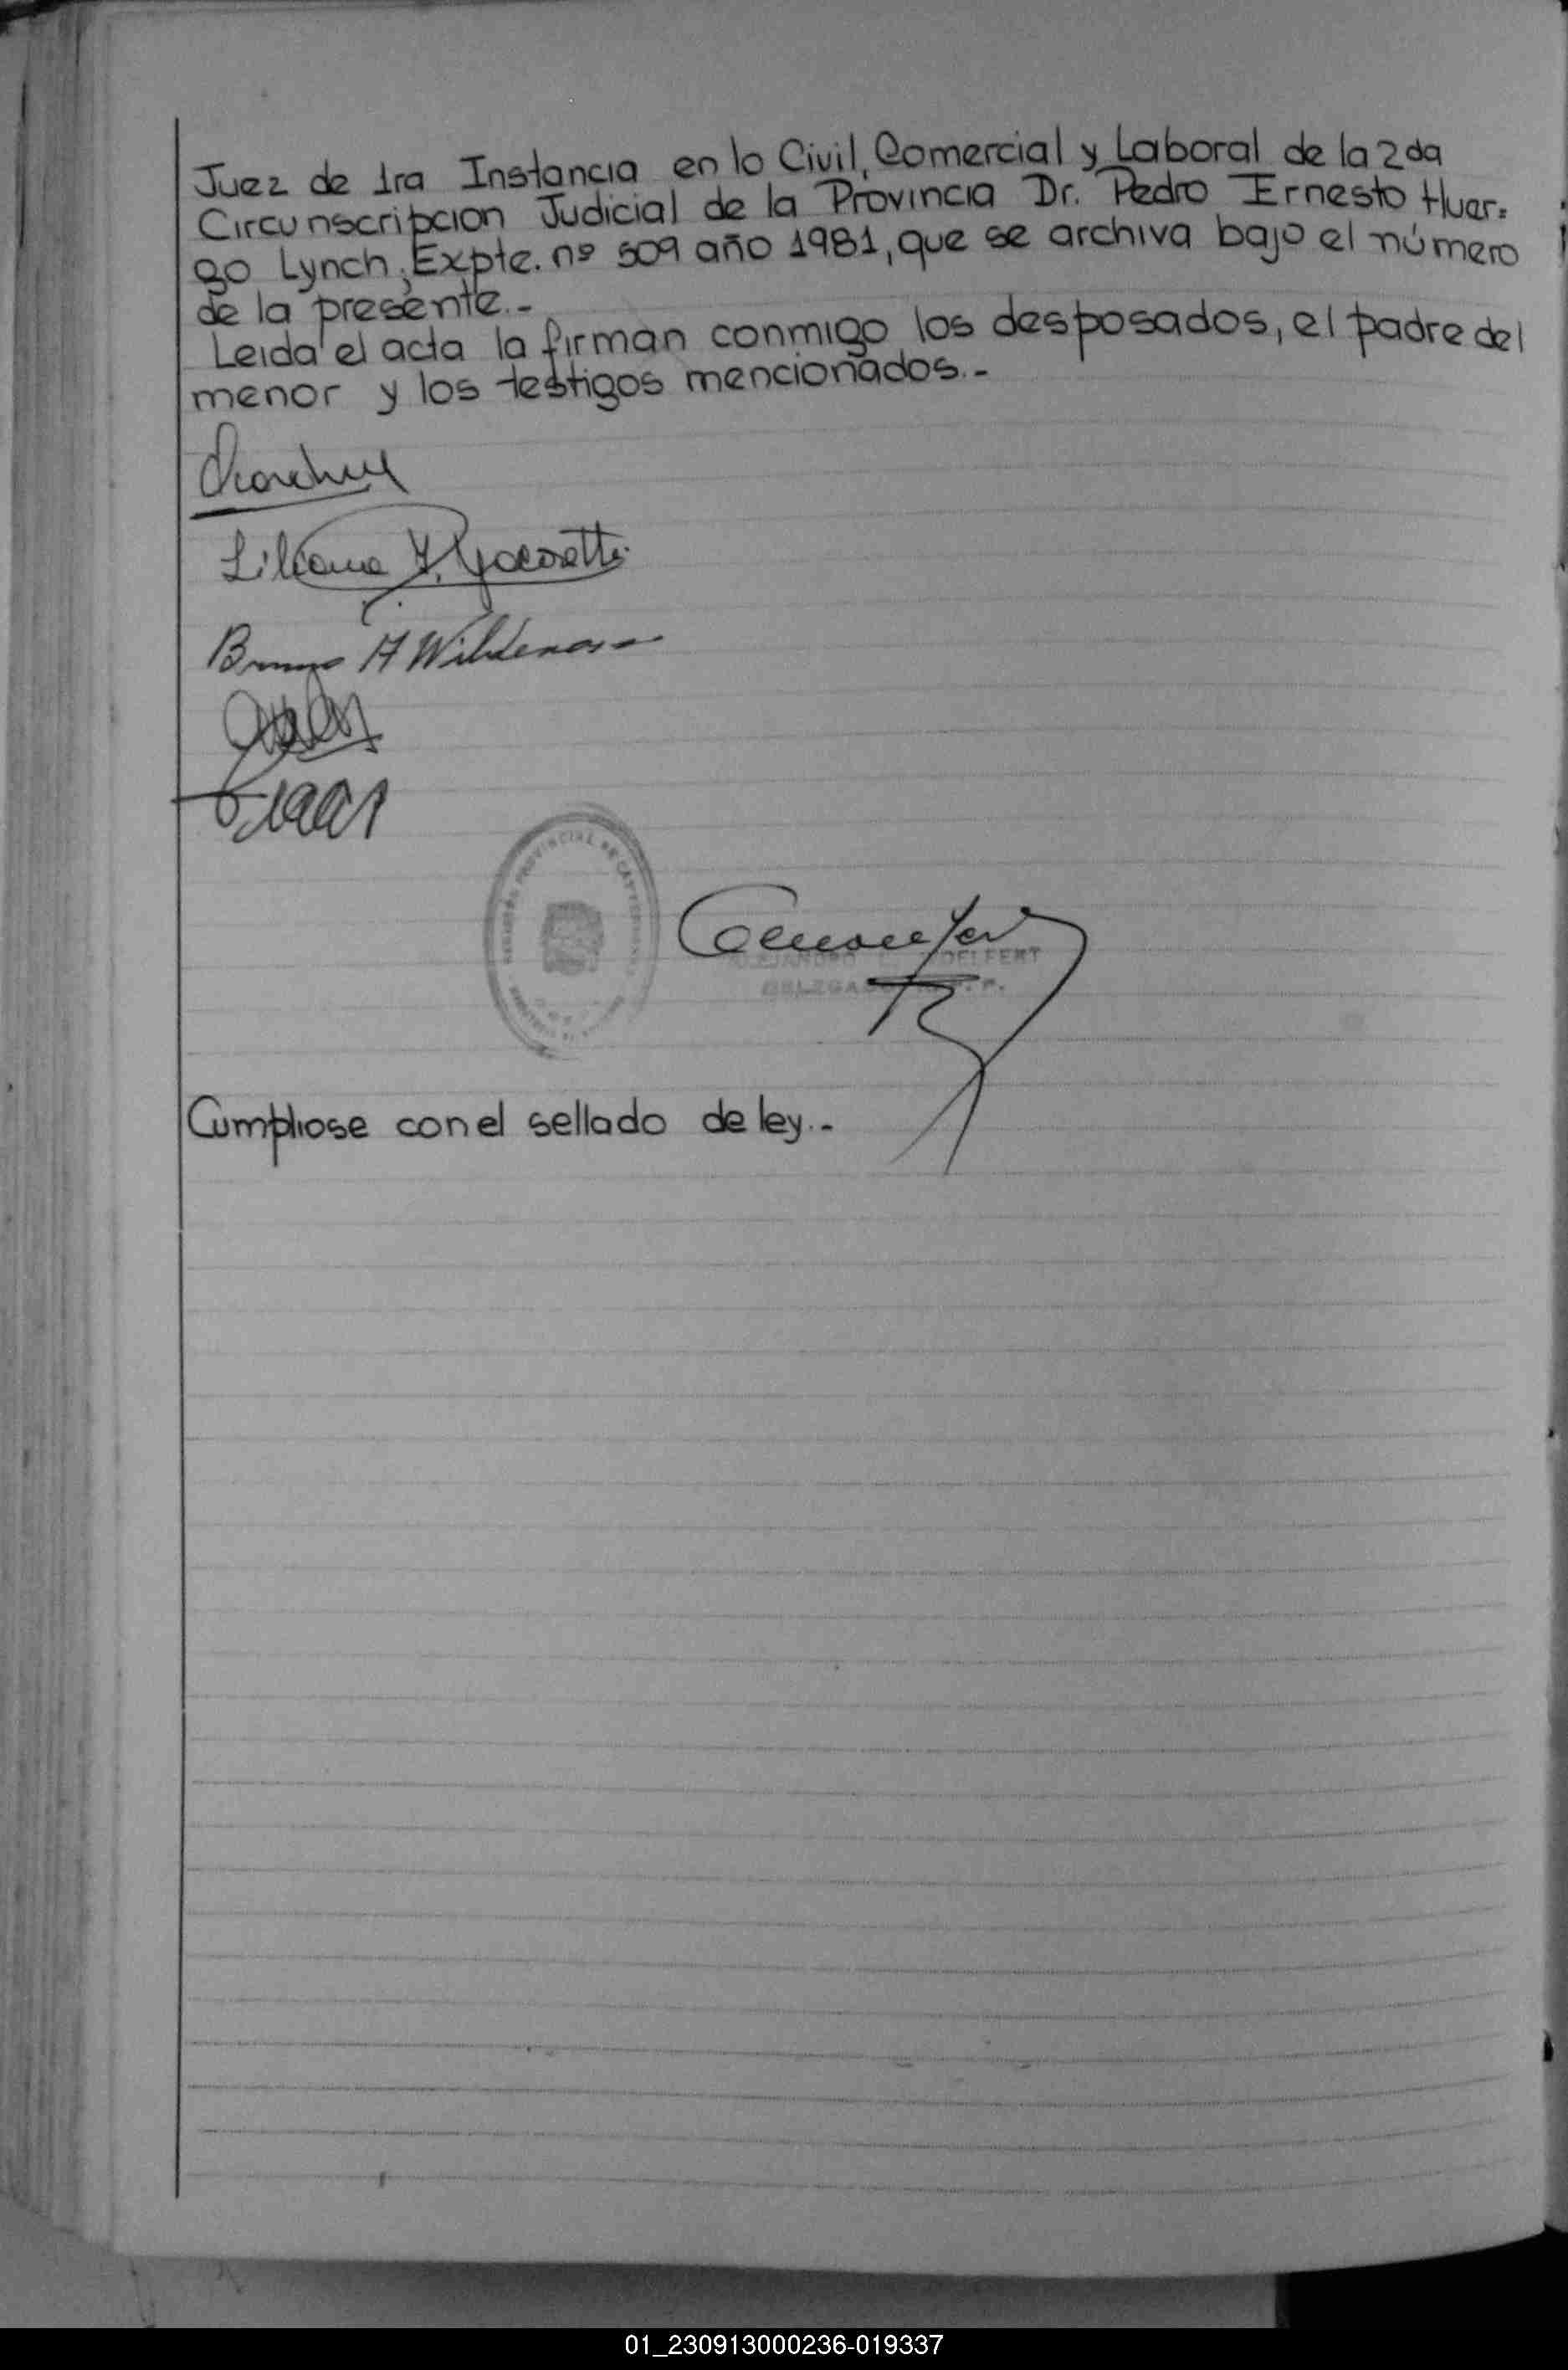 Juez de 1ra Instancia en lo Civil, Comercial y Laboral de la 2da
Circunscripcion Judicial de la Provincia Dr. Pedro Ernesto Huer=
go Lynch; Expte. nº 509 año 1981, que se archiva bajo el número
de la presente.-
Leida el acta la firman conmigo los desposados, el padre del
menor y los testigos mencionados.-
Liliana
Bruno A Wildemann
PROVINCIAL DE
DELFERT
Cumpliose con el sellado de ley.-
01_230913000236-019337